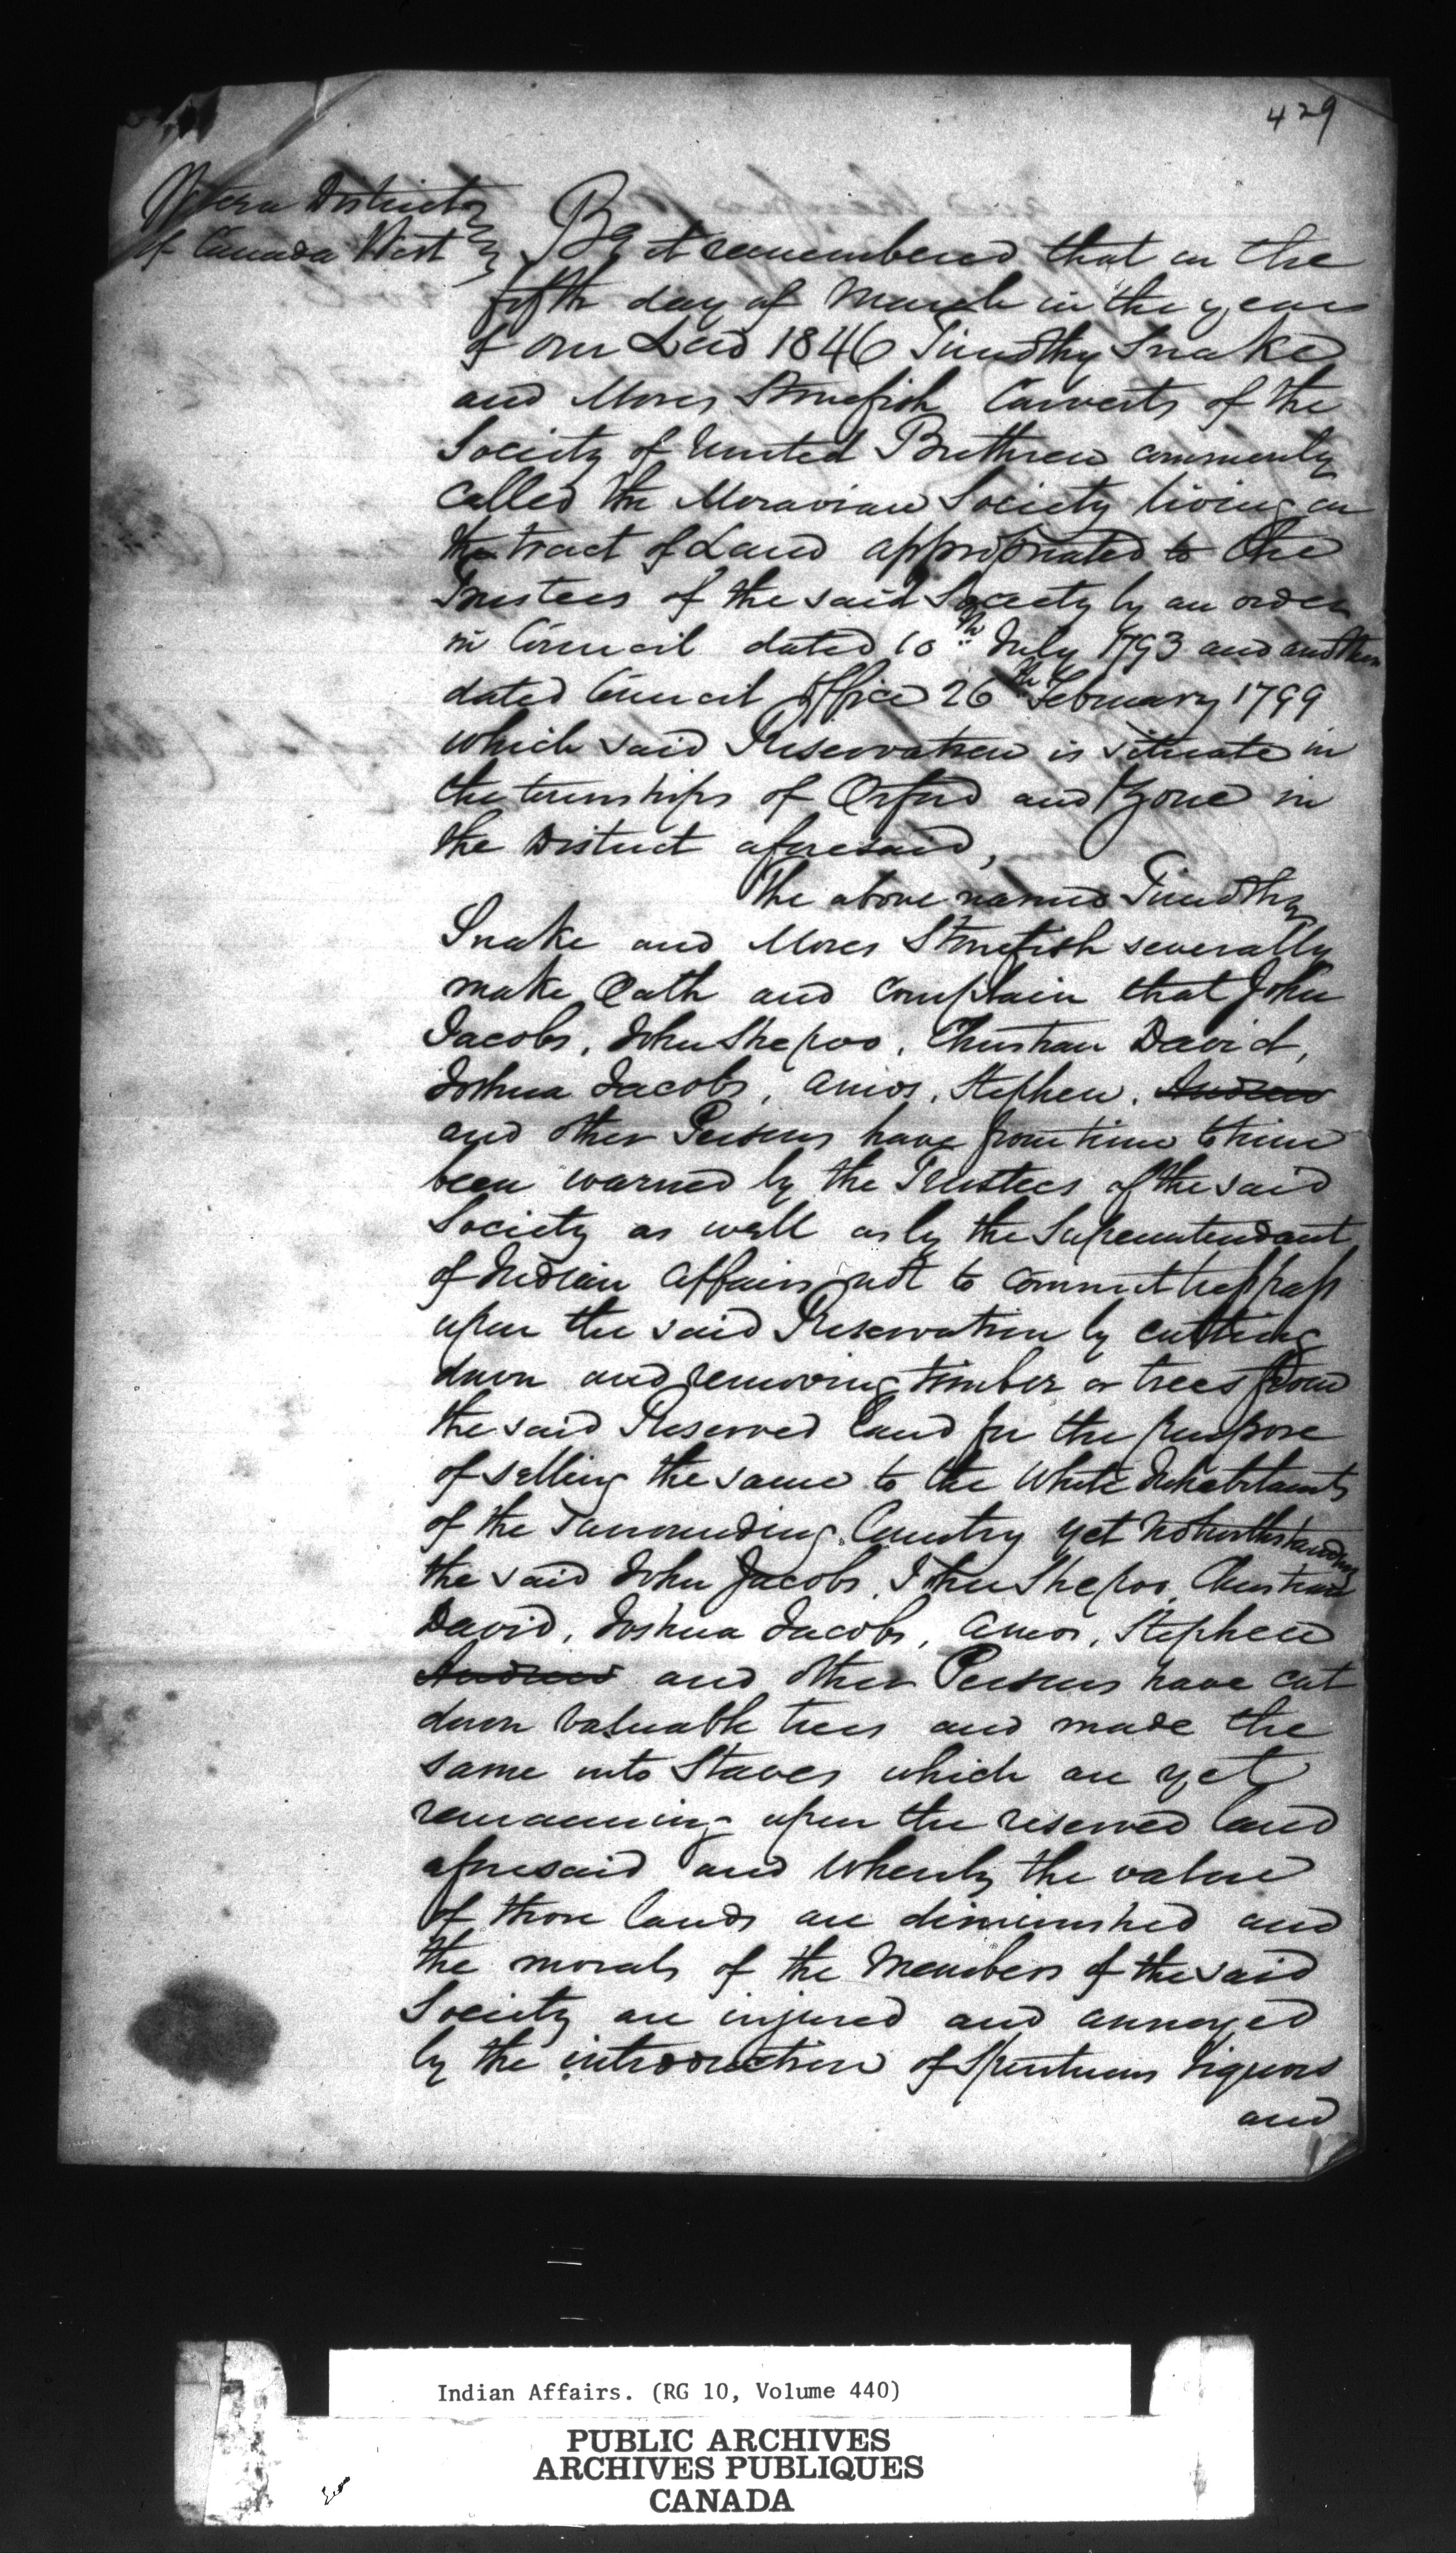 429
Western District
of Canada West
Be it remembered that on the
fifth day of March in the year
of our Lord 1846 Timothy Snake
and Moses Stonefish Converts of the
Society of United Brethren commonly
called the Moravian Society living on
the tract of Land appropriated to the
Trustees of the said Society by an order
in Council dated 10th July 1793 and another
dated Council Office 26th February 1799
which said Reservation is situate in
the townships of Orford and Zone in
the District aforesaid,
The above named Timothy
Snake and Moses Stonefish severally
make Oath and complain that John
Jacobs, John Shepoo, Christian David,
Joshua Jacobs, Amos, Stephen, Andrew
and other Persons have from time to time
been warned by the Trustees of the said
Society as well as by the Superintendant
of Indian Affairs not to commit trespass
upon the said Reservation by cutting
down and removing timber or trees from
the said Reserved land for the purpose
of selling the same to the White Inhabitants
of the surrounding Country yet notwithstanding
the said John Jacobs, John Shepoo, Christian
David, Joshua Jacobs, Amos, Stephen
Andrew and other Persons have cut
down valuable trees and made the
same into Staves which are yet
remaining upon the reserved land
aforesaid and whereby the value
of those lands are diminished and
the morals of the Members of the said
Society are injured and annoyed
by the introduction of Spirituous liquors
and
Indian Affairs. (RG 10, Volume 440)
PUBLIC ARCHIVES
ARCHIVES PUBLIQUES
CANADA